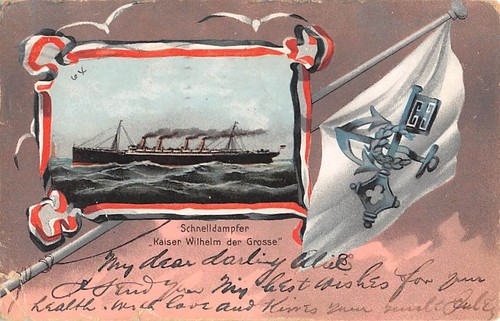 64
Schnelldampfer
„Kaiser Wilhelm der Grosse"
My dear darling
I send you My best wishes for your
health. with love and Kisses your